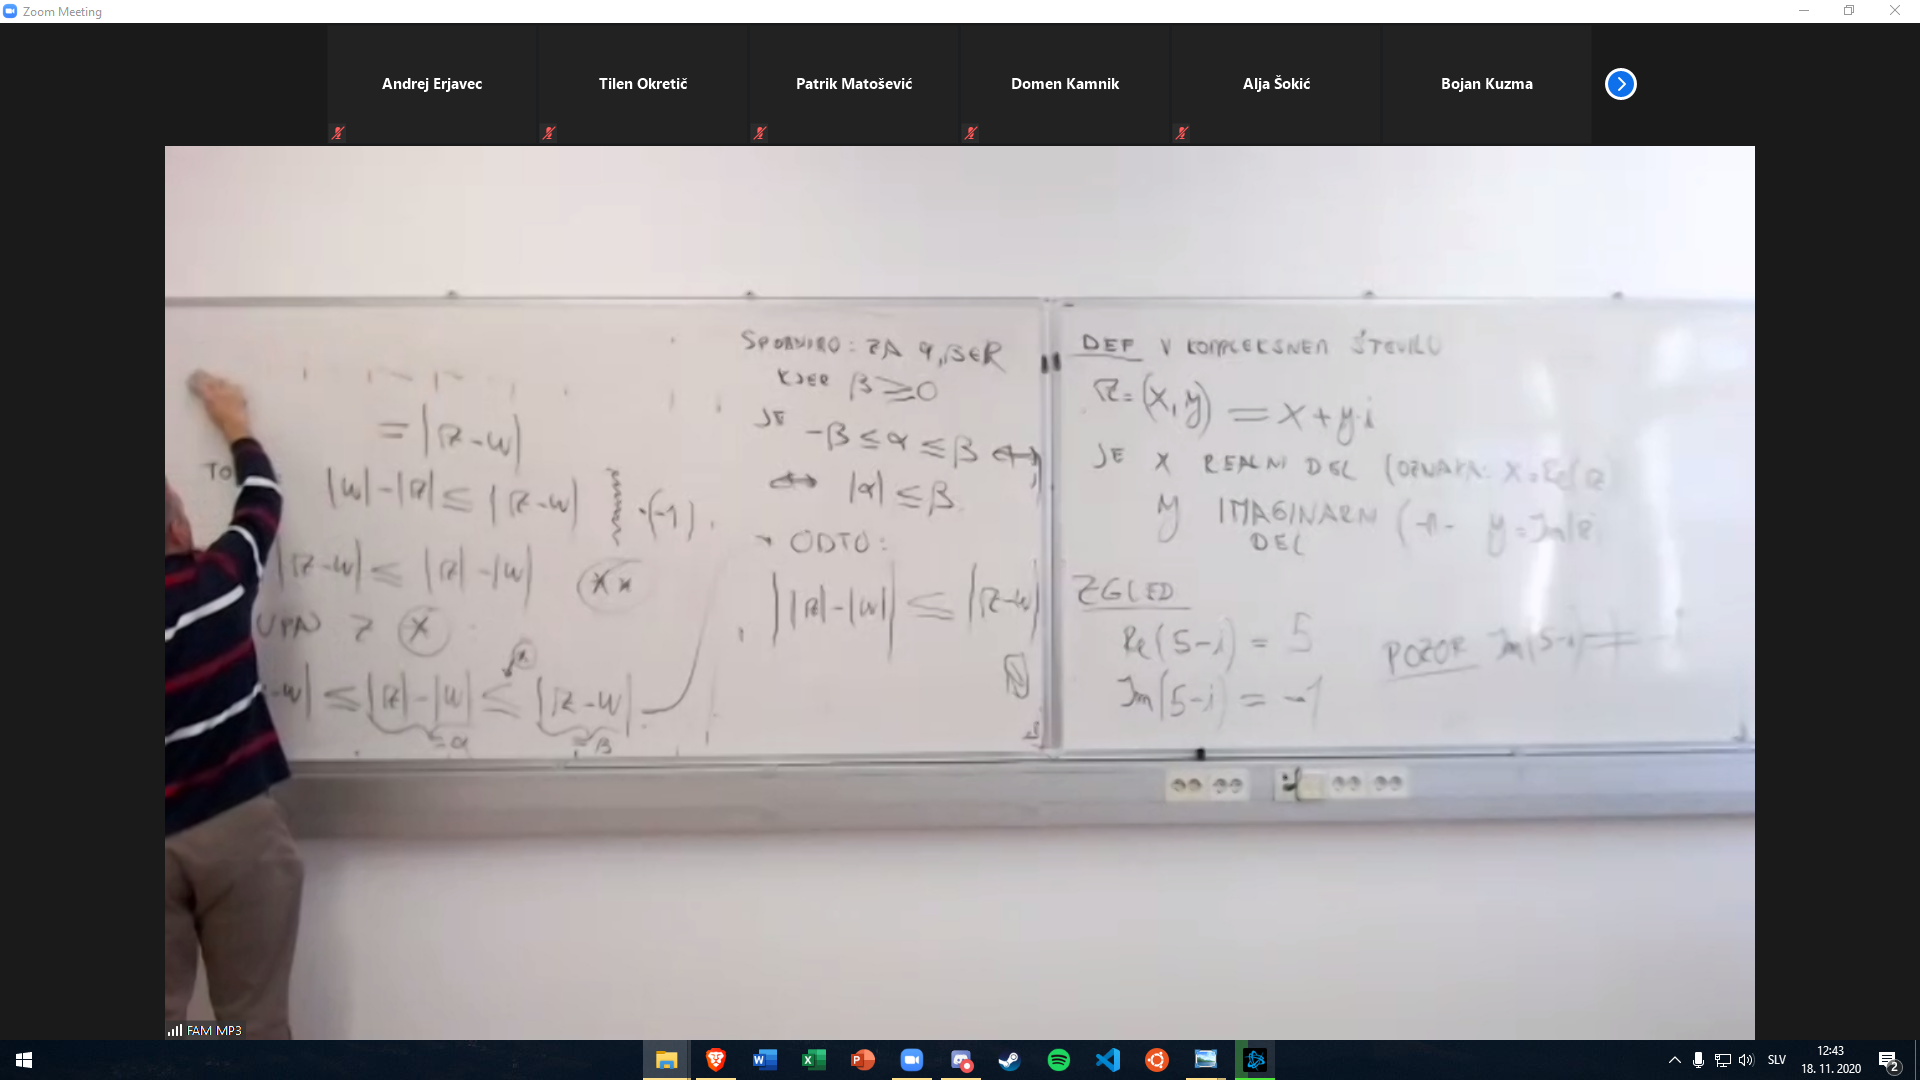 Zoom Meeting
Andrej Erjavec
Tilen Okretič
Patrik Matošević
Domen Kamnik
Alja Šokić
Bojan Kuzma
= |z-w|
TO
|w|-|z| ≤ |z-w| ·(-1)
|z-w| ≤ |z|-|w| **
*
-w| ≤ |z|-|w| ≤ |z-w|
=α =β
ZA α,β∈R
KJER β≥0
JE -β ≤ α ≤ β ⟺
⟺ |α| ≤ β
ODTO:
||z|-|w|| ≤ |z-w|
DEF V KOMPLEKSNEM ŠTEVILU
z=(x,y) = x+y·i
JE x REALNI DEL (OZNAKA: x=Re(z)
y IMAGINARNI (-11- y=Im(z)
DEL
ZGLED
Re(5-i) = 5
Im(5-i) = -1
POZOR Im(5-i) ≠ -i
FAM MP3
SLV
12:43
18. 11. 2020
2